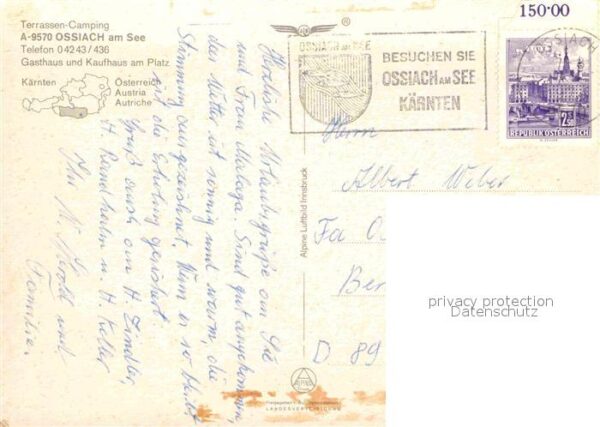 Terrassen-Camping
A-9570 OSSIACH am See
Telefon 04243/436
Gasthaus und Kaufhaus am Platz
Kärnten
Österreich
Austria
Autriche
Herzliche Urlaubsgrüße an Sie
und Frau Malaga. Sind gut angekommen,
das Wetter ist sonnig und warm, die
Stimmung ausgezeichnet. Wenn es so bleibt
ist die Erholung gesichert.
Gruß auch an H. Zindler,
H. u. H. Keller
Ihr W. und
Familie.
Alpine Luftbild Innsbruck
ALPINE
LANDESVERTEIDIGUNG
OSSIACH am SEE
BESUCHEN SIE
OSSIACH AM SEE
KÄRNTEN
150·00
OSSIACH
2.50
REPUBLIK ÖSTERREICH
Herrn
Albert Weber
Fa O
Ber
D 89
privacy protection
Datenschutz